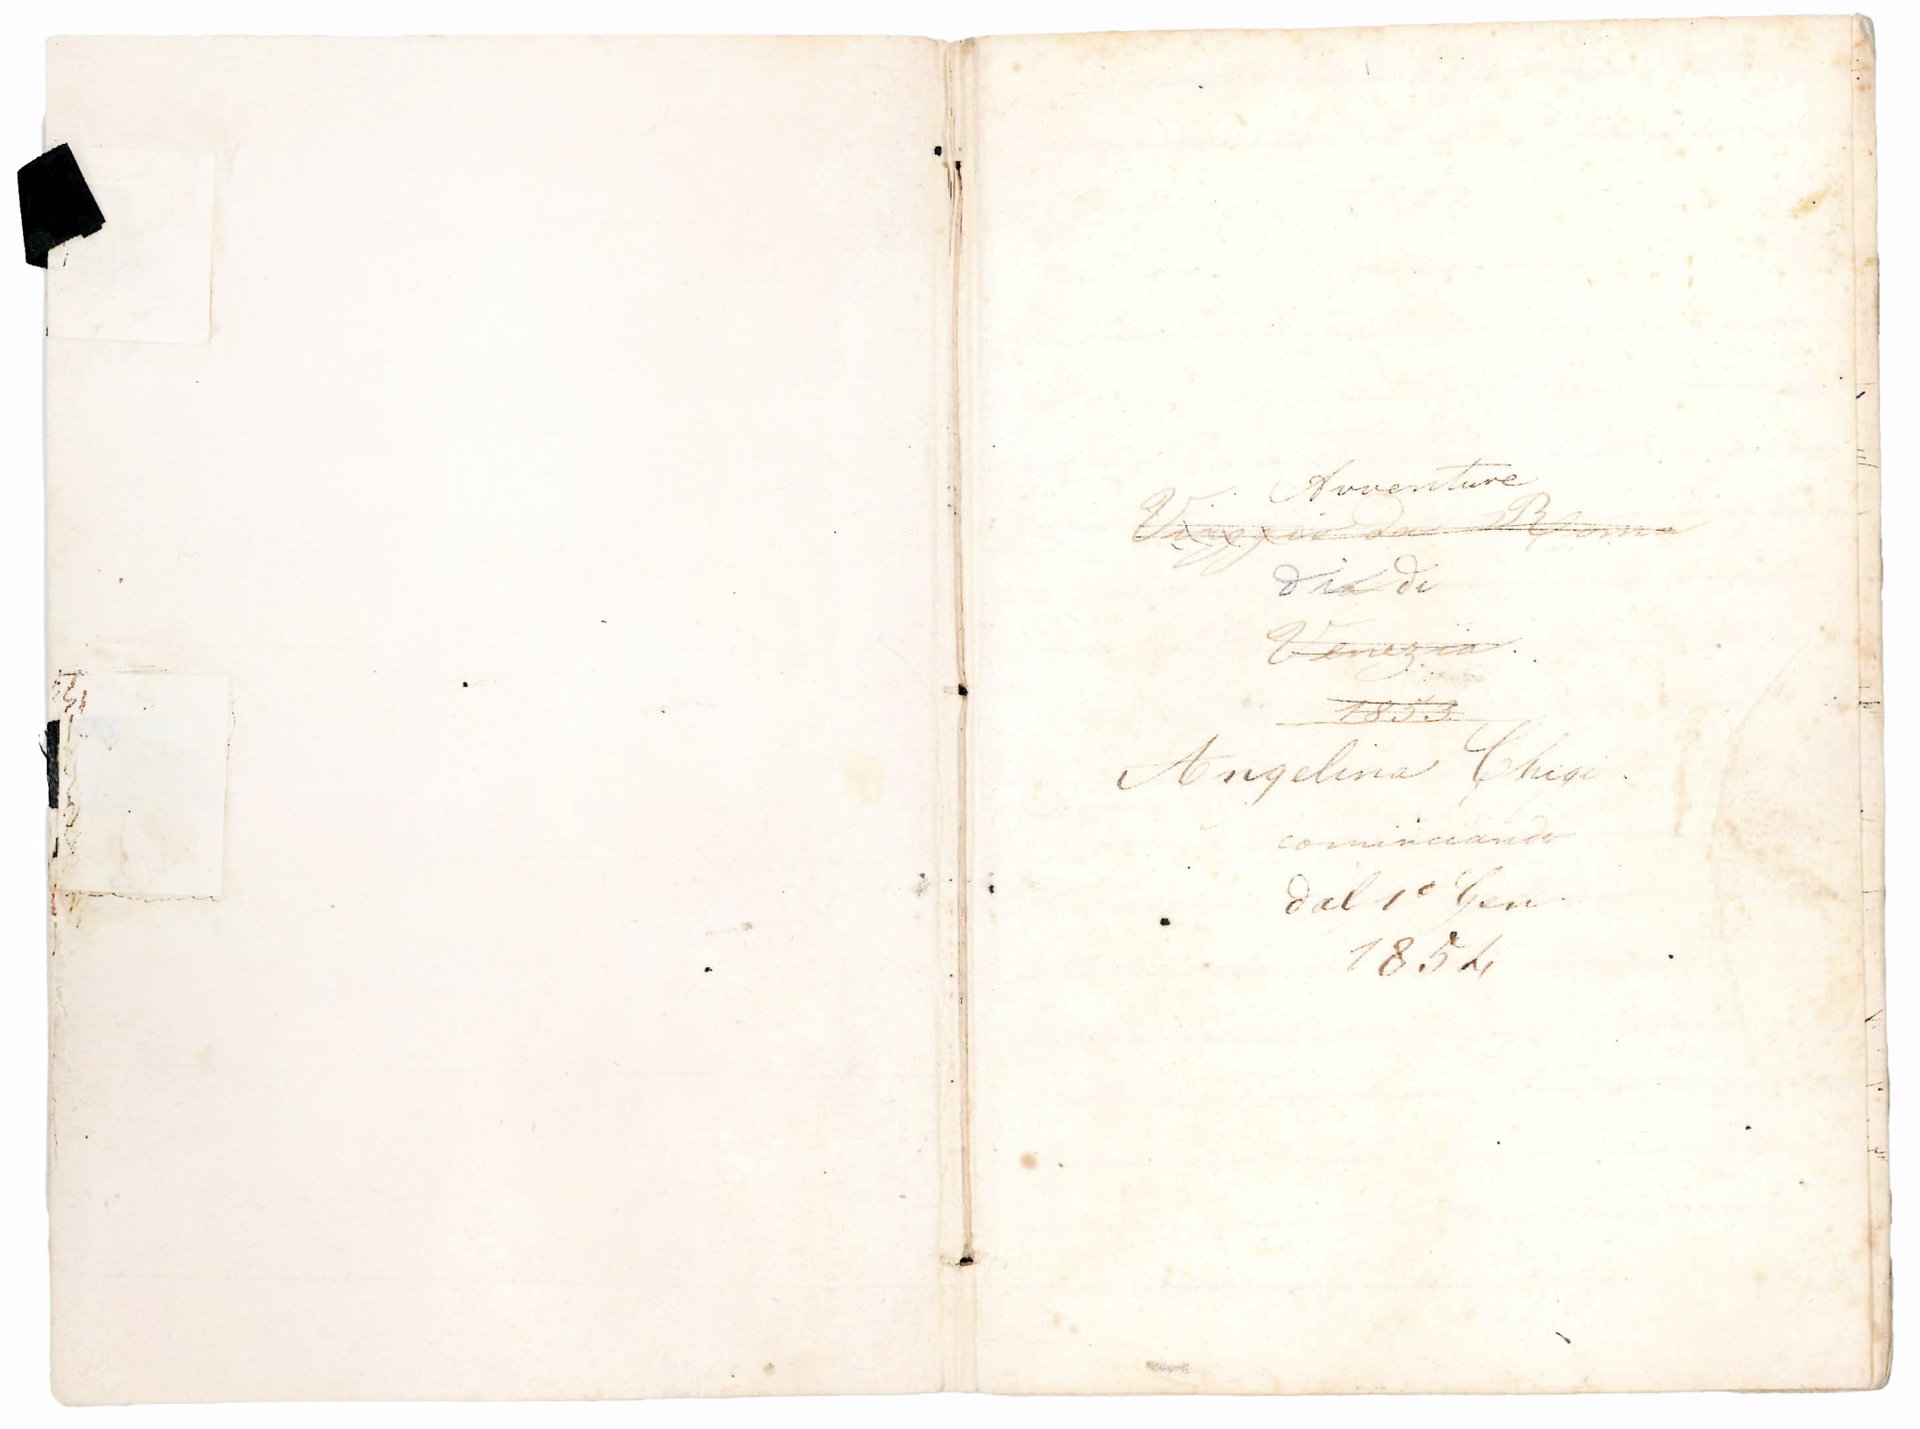 Avventure
Viaggio da Roma
di
Venezia.
1853
Angelina Chigi.
cominciando
dal 1° Gen.
1854